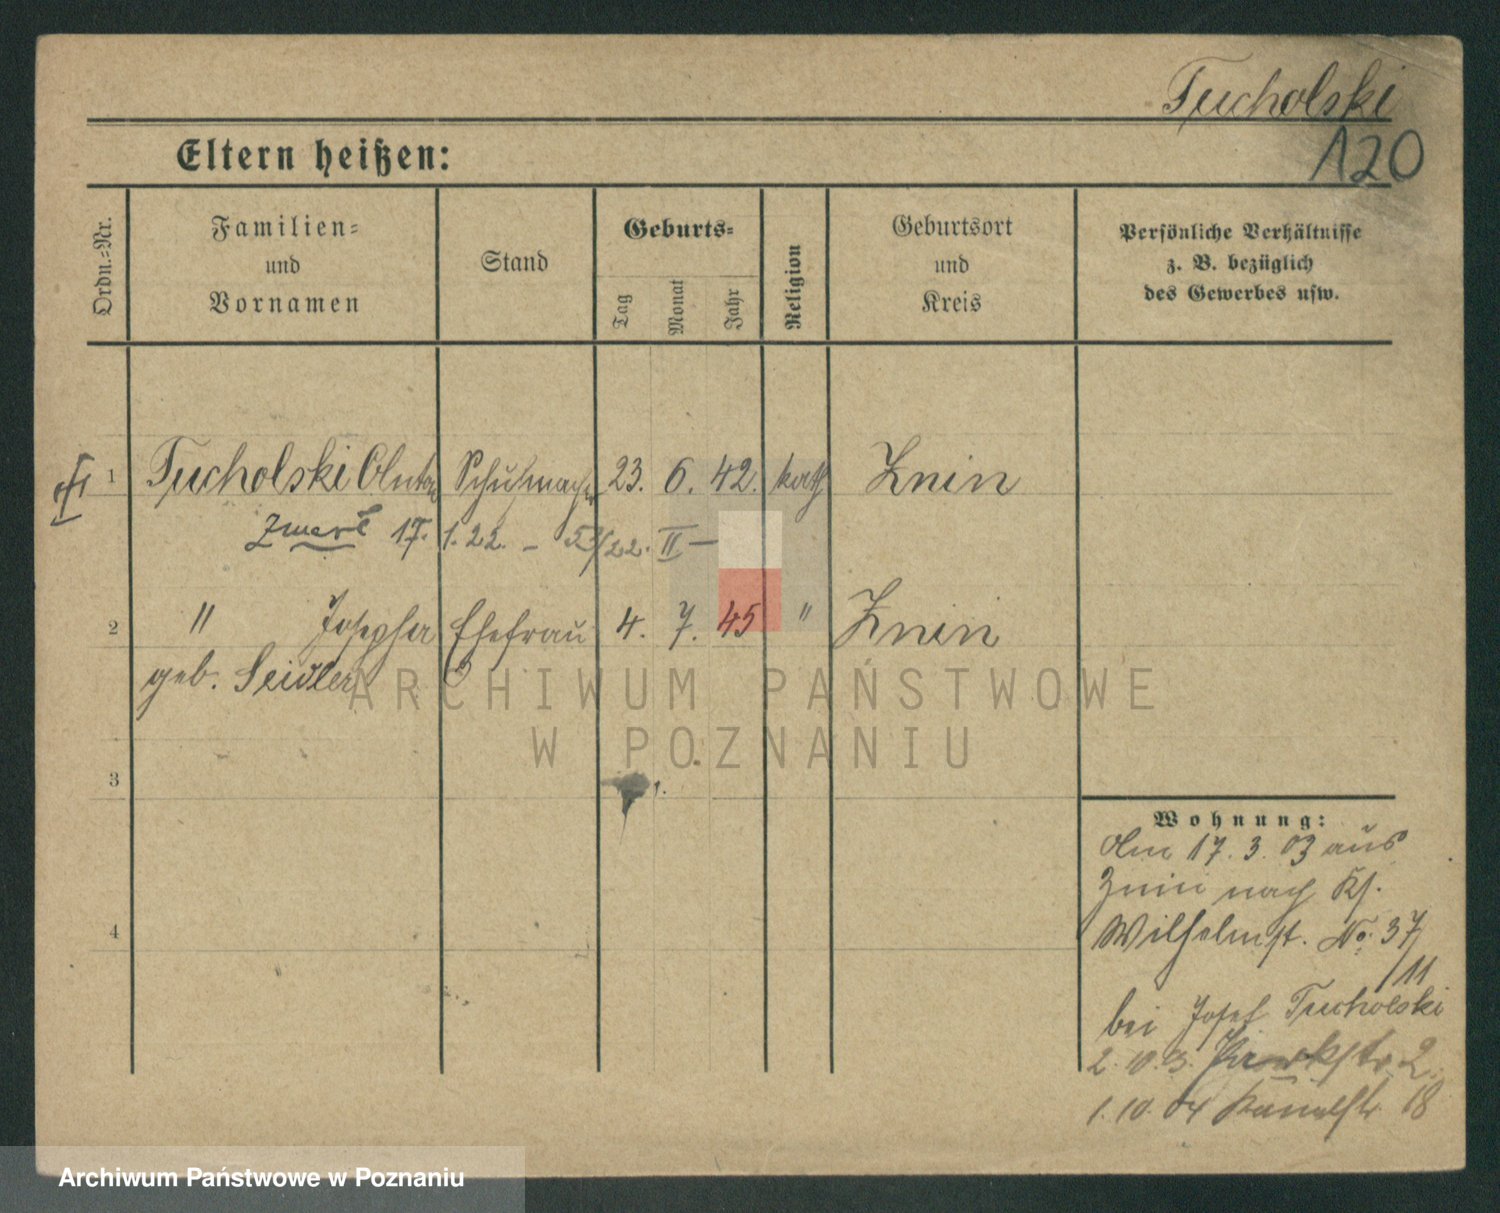 Tucholski
120
Eltern heißen:
Ordn.-Nr.
Familien-
und
Vornamen
Stand
Geburts-
Tag
Monat
Jahr
Religion
Geburtsort
und
Kreis
Persönliche Verhältnisse
z. B. bezüglich
des Gewerbes usw.
1 Tucholski Anton Schuhmacher 23. 6. 42. kath Znin
Zmarł 17. 1. 22. – /22. II –
2 " Josepha Ehefrau 4. 7. 45 " Znin
geb. Seidler
3
4
Wohnung:
Am 17. 3. 03 aus
Znin nach
Wilhelmst. No. 37
11
bei Josef Tucholski
2. 10. 3. Parkstr 2.
1. 10. 04 Kanalstr 18
ARCHIWUM PAŃSTWOWE
W POZNANIU
Archiwum Państwowe w Poznaniu